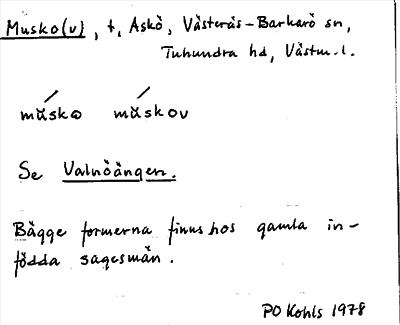 Musko(v), t, Askö, Västerås-Barkarö sn,
Tuhundra hd, Västm.l.
mŭskɷ mŭskɷv
Se Valnöängen.
Bägge formerna finns hos gamla in-
födda sagesmän.
PO Kohls 1978